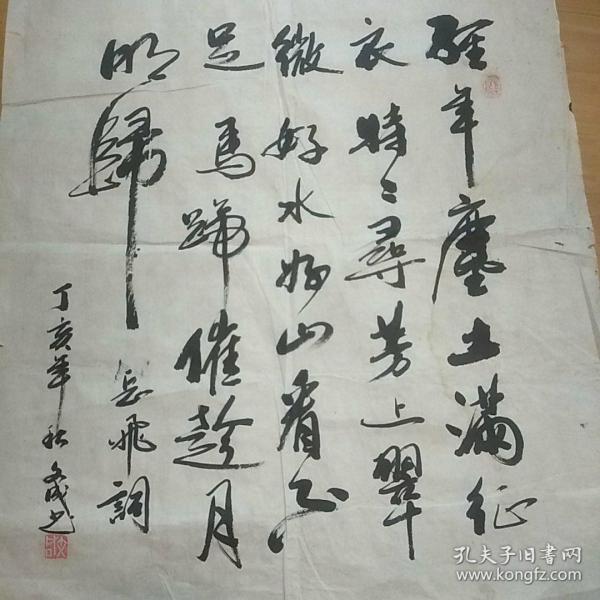 經年塵土滿征
衣特特尋芳上翠
微好水好山看不
足馬蹄催趁月
明歸
岳飛詞
丁亥年秋文成书
孔夫子旧书网
www.kongfz.com